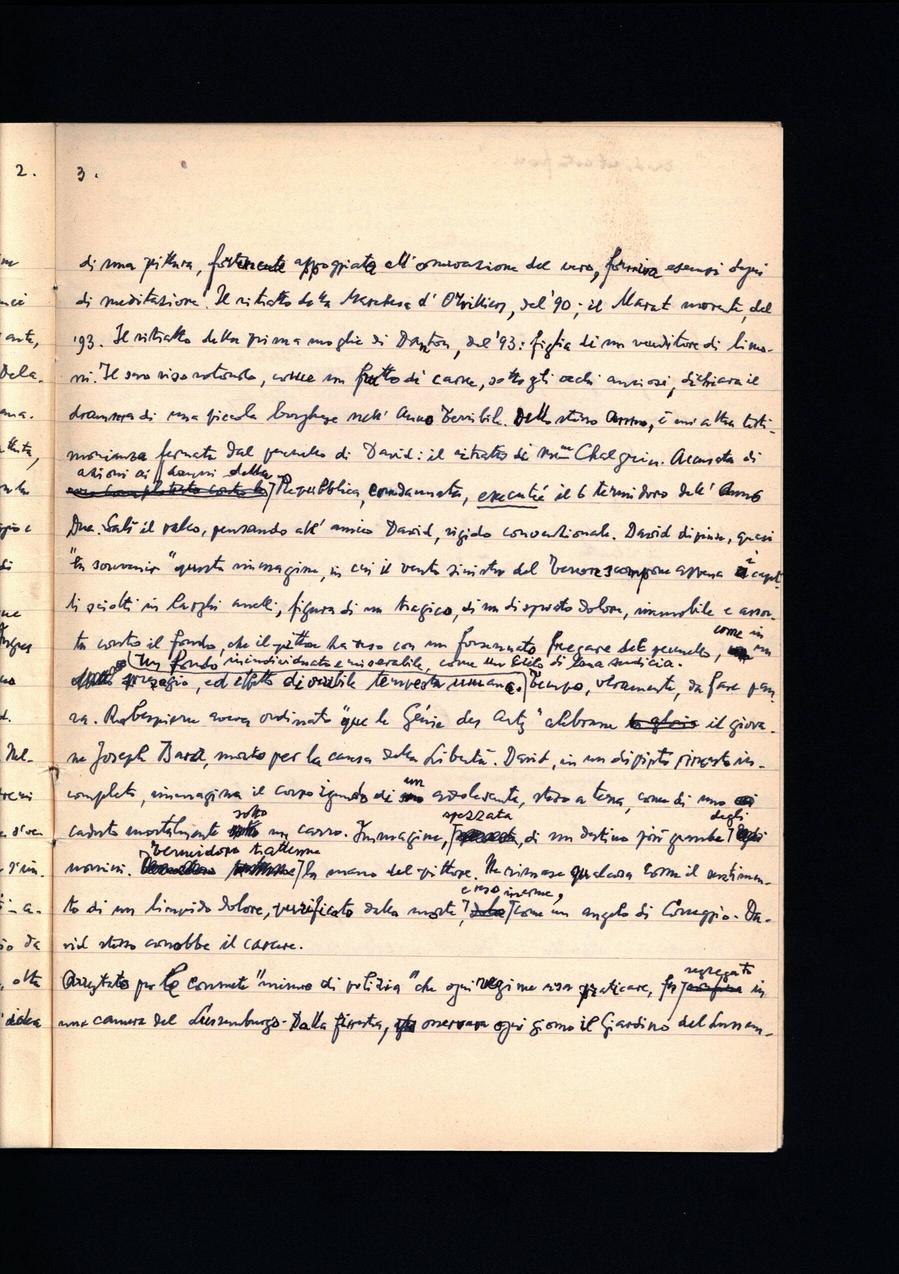 2.
3.
di una pittura, fortemente appoggiata all'osservazione del vero, forniva esempi degni
di meditazione. Il ritratto della Marchesa d'Orvilliers, del '90; il Marat morente, del
'93. Il ritratto della prima moglie di Danton, del '93: figlia di un venditore di limo-
ni. Il suo viso rotondo, come un frutto di carne, sotto gli occhi ansiosi, dichiara il
dramma di una piccola borghese nell'Anno Terribile. Dello stesso Anno, è un'altra testi-
monianza fermata dal pennello di David: il ritratto di Mme Chalgrin. Accusata di
azioni ai danni della
Repubblica, condannata, executée il 6 termidoro dell'Anno
Due. Salì il palco, pensando all'amico David, rigido convenzionale. David dipinse, quasi
"en souvenir" questa immagine, in cui il vento sinistro del Terrore scompone appena i capel-
li sciolti in larghi anelli, figura di un tragico, di un disperato dolore, immobile e assor-
ta contro il fondo, che il pittore ha reso con un forsennato fregare del pennello, come in un
un fondo inindividuato e miserabile, come un cielo di zona sudicia.
presagio, ed effetto di orribile tempesta umana. Tempo, veramente, da fare pau-
ra. Robespierre aveva ordinato "que le Génie des Arts" celebrasse il giova-
ne Joseph Bara, morto per la causa della Libertà. David, in un dipinto rimasto in-
completo, immagina il corpo ignudo di un adolescente, steso a terra, come di uno
caduto mortalmente sotto un carro. Immagine, spezzata, di un destino più grande degli
uomini. Termidoro trattenne la mano del pittore. Ne rimase qualcosa come il sentimen-
to di un limpido dolore, purificato dalla morte, e reso inerme, come un angelo di Correggio. Da-
vid stesso conobbe il carcere.
Arrestato per le consuete "misure di polizia" che ogni regime usa praticare, fu segregato in
una camera del Lussemburgo. Dalla finestra, osservava ogni giorno il Giardino del Lussem-